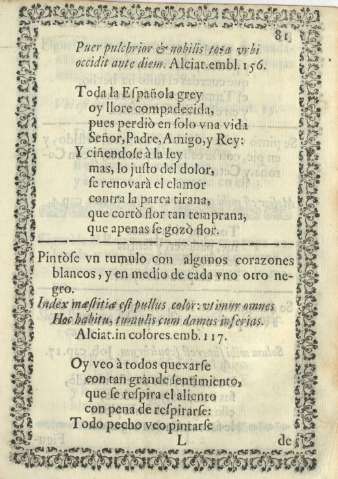 81
Puer pulchrior & nobilis tota vrbi
occidit ante diem. Alciat. embl. 156.
Toda la Española grey
oy llore compadecida,
pues perdiò en solo vna vida
Señor, Padre, Amigo, y Rey:
Y ciñendose à la ley
mas, lo justo del dolor,
se renovarà el clamor
contra la parca tirana,
que cortò flor tan temprana,
que apenas se gozò flor.
Pintòse vn tumulo con algunos corazones
blancos, y en medio de cada vno otro ne-
gro.
Index mæstitiæ est pullus color: vtimur omnes
Hoc habitu, tumulis cum damus inferias.
Alciat. in colores. emb. 117.
Oy veo à todos quexarse
con tan grande sentimiento,
que se respira el aliento
con pena de respirarse:
Todo pecho veo pintarse
L de